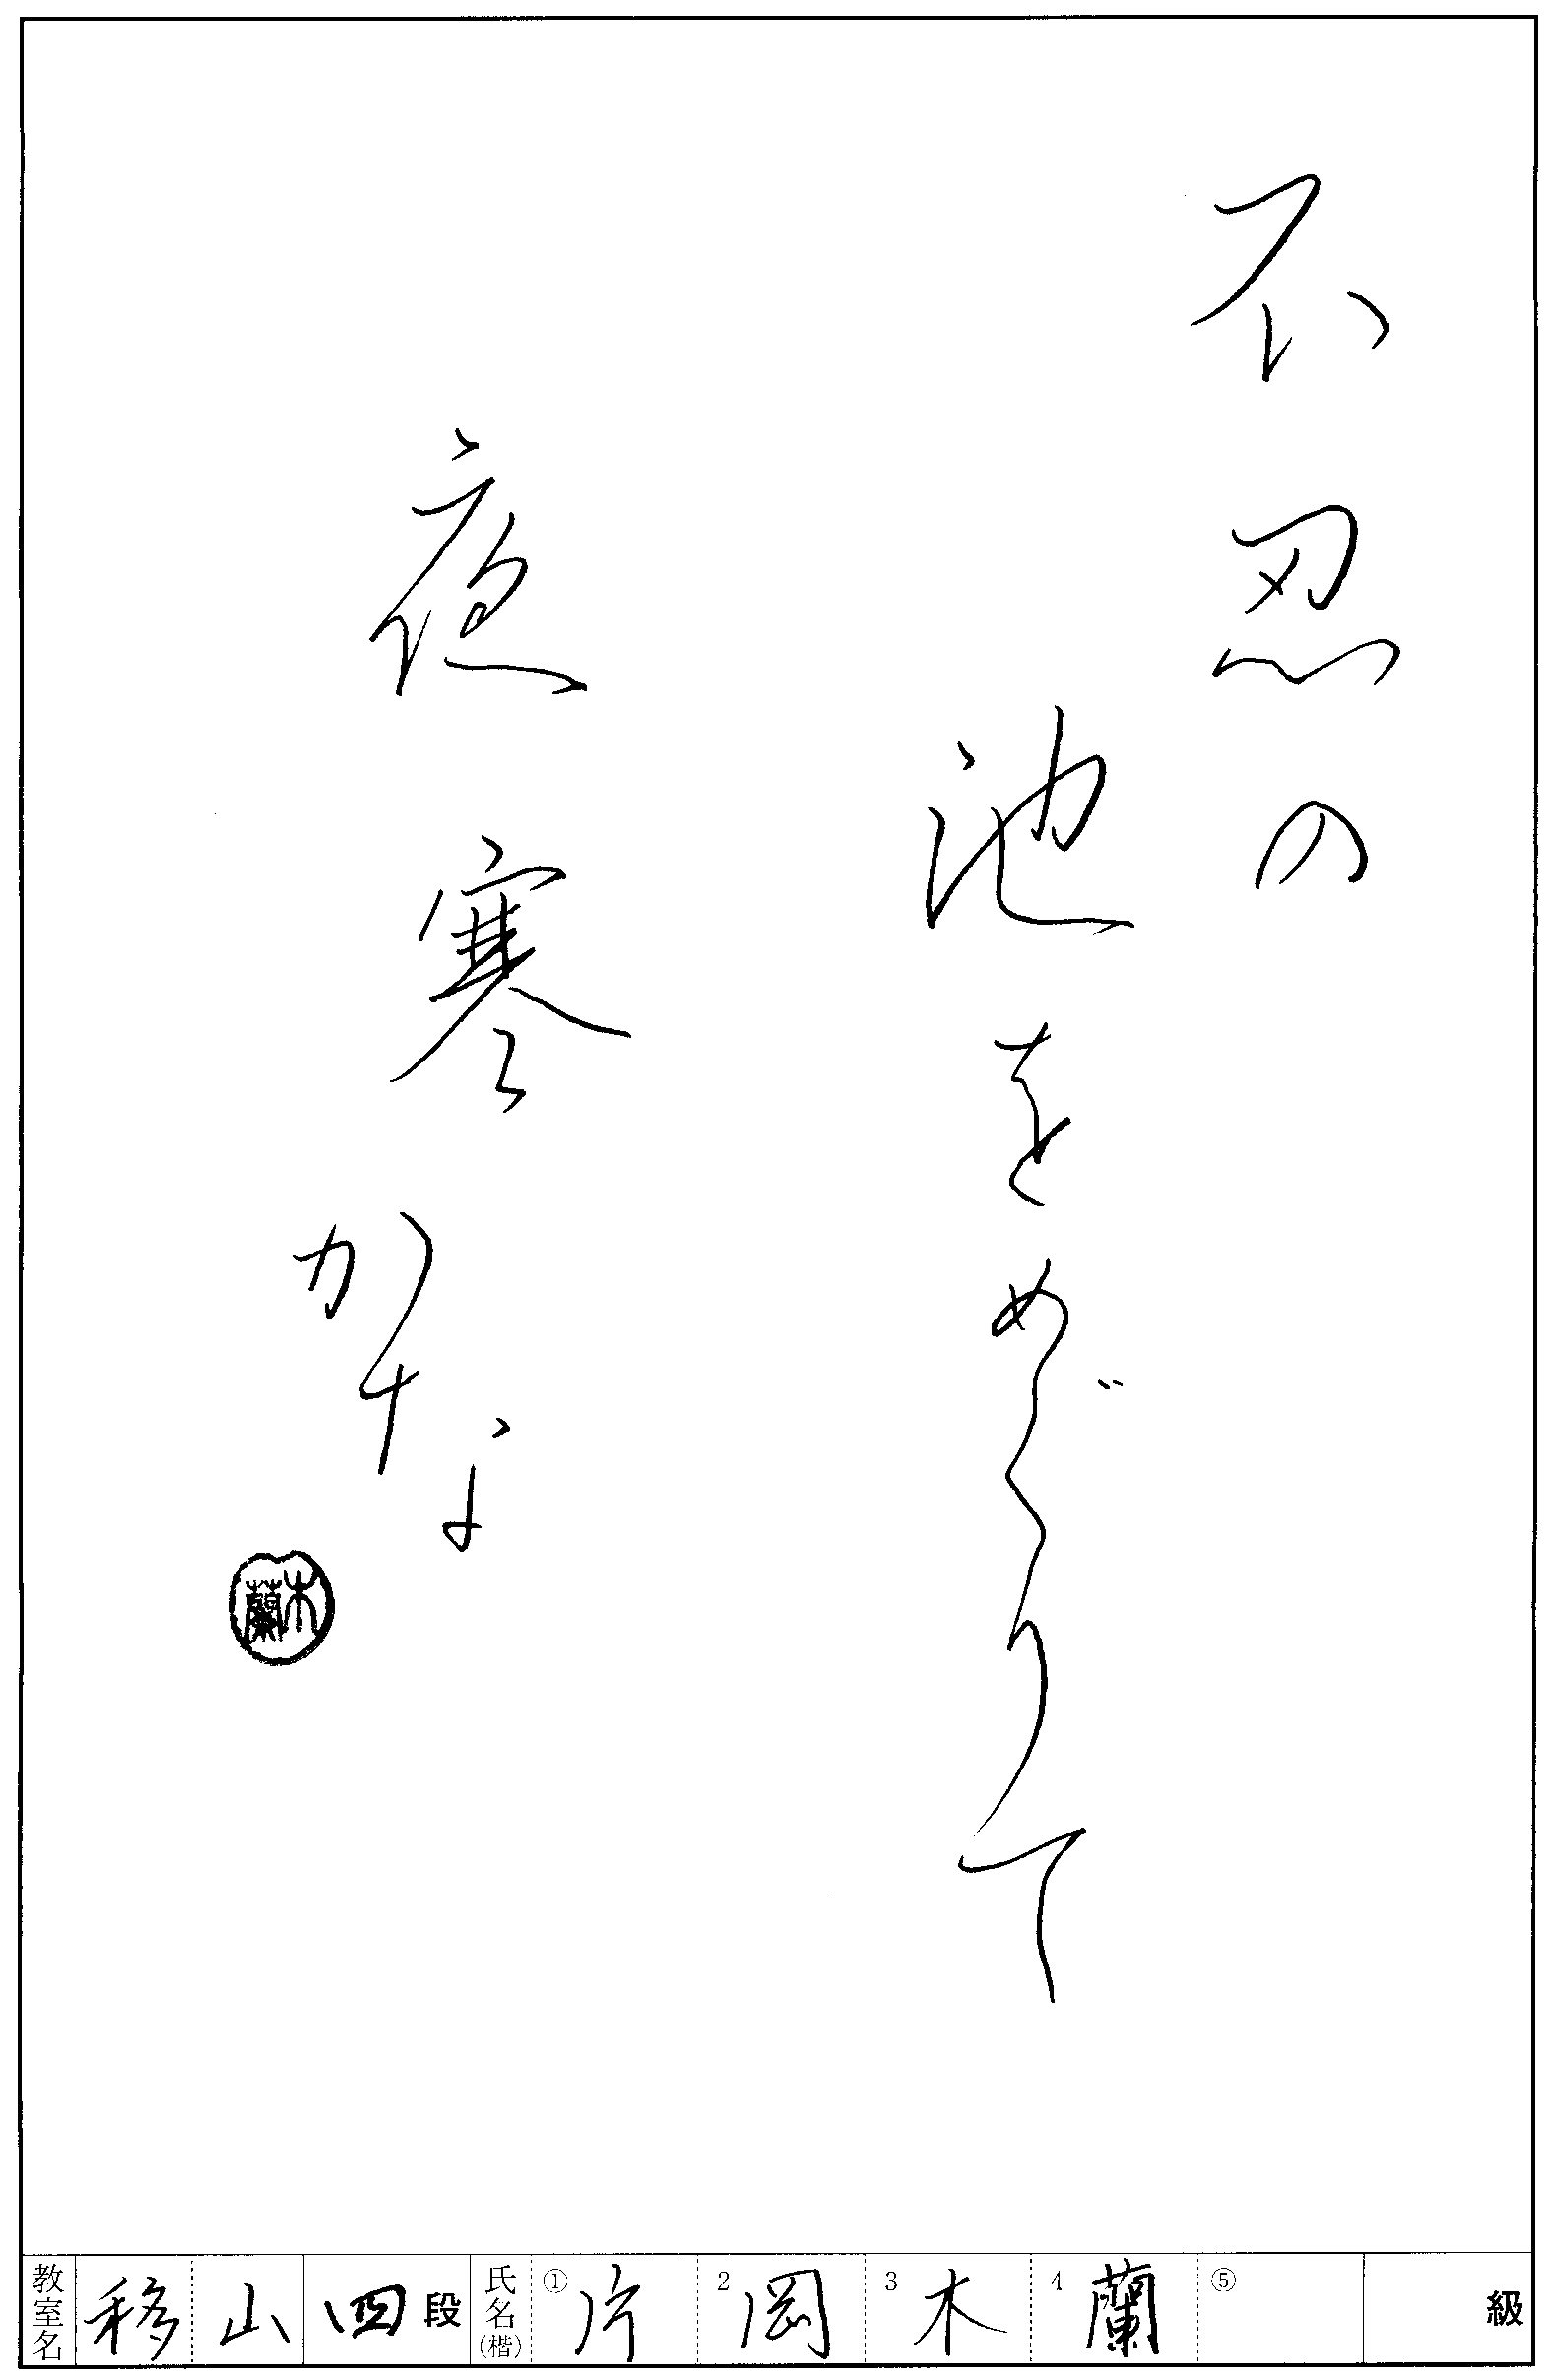 不忍の
池をめぐりて
夜寒かな
木蘭
教室名 移山 四段 氏名(楷) ①片 2岡 3木 4蘭 ⑤ 級